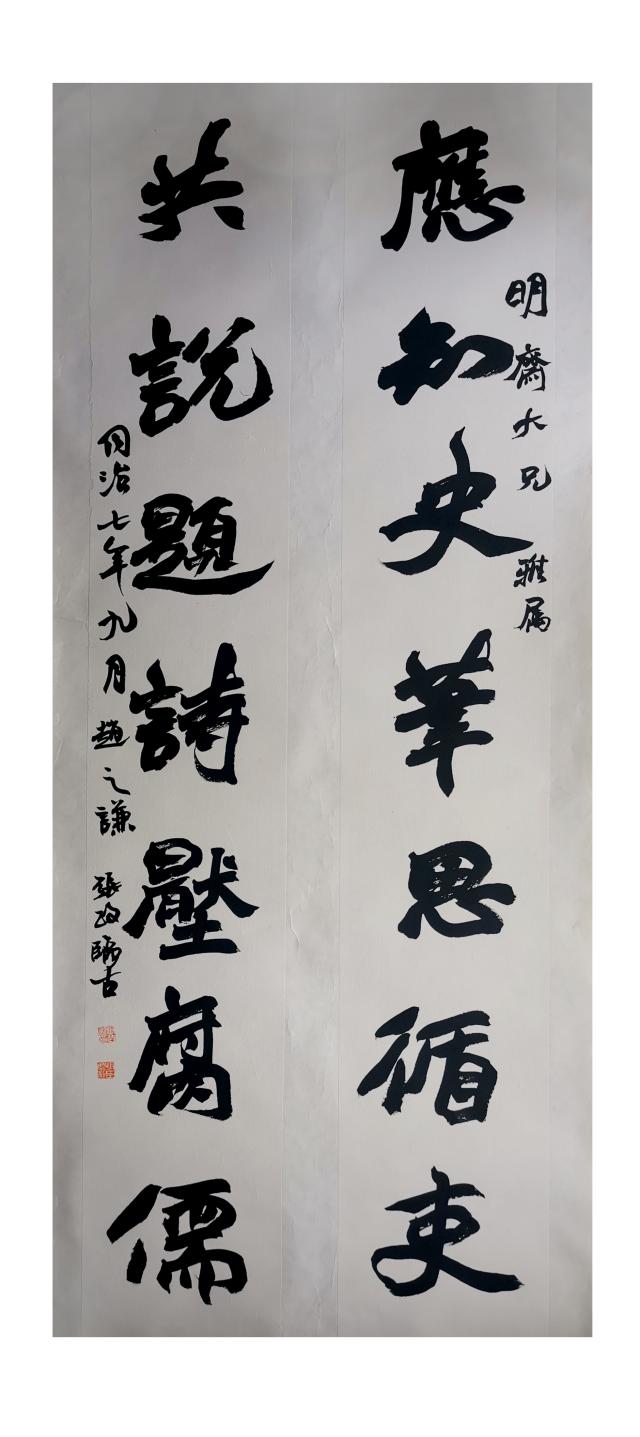 應知史筆思循吏
明齋大兄 雅属
共說題詩壓腐儒
同治七年九月 趙之謙 張政臨古